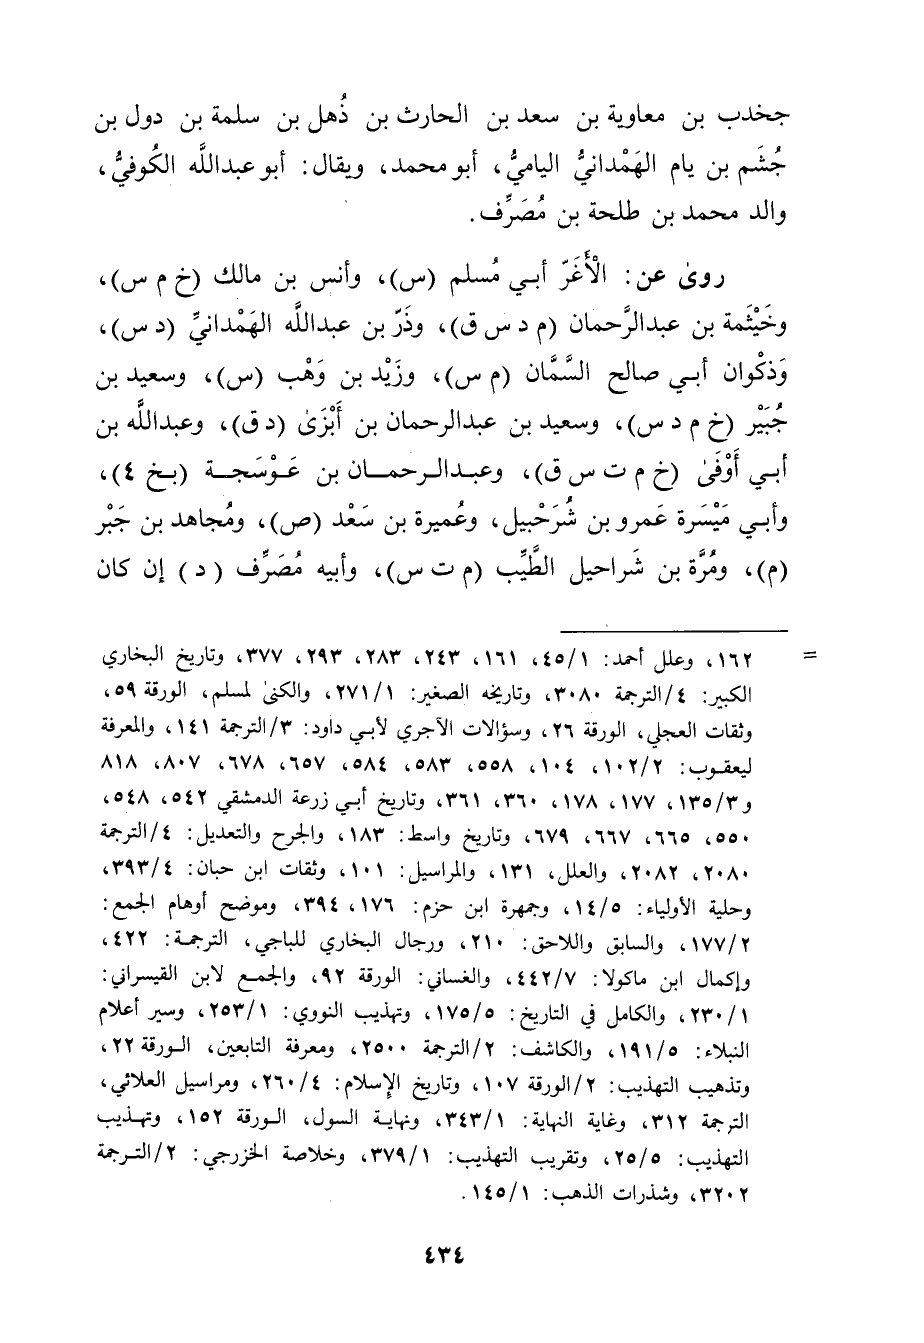 جخدب بن معاوية بن سعد بن الحارث بن ذُهل بن سلمة بن دول بن
جُشَم بن يام الهَمْدانيُّ الياميُّ، أبو محمد، ويقال: أبو عبدالله الكُوفيُّ،
والد محمد بن طلحة بن مُصَرِّف.
روىٰ عن: الْأَغَرّ أبي مُسلم (س)، وأنس بن مالك (خ م س)،
وخَيْثمة بن عبدالرَّحمان (م د س ق)، وذَرّ بن عبدالله الهَمْدانيِّ (د س)،
وَذكْوان أبي صالح السَّمَّان (م س)، وزَيْد بن وَهْب (س)، وسعيد بن
جُبَيْر (خ م د س)، وسعيد بن عبدالرحمان بن أَبْزَىٰ (د ق)، وعبدالله بن
أبي أَوْفَىٰ (خ م ت س ق)، وعبدالرحمان بن عَوْسَجة (بخ ٤)،
وأبي مَيْسَرة عَمرو بن شُرَحْبيل، وعُميرة بن سَعْد (ص)، ومُجاهد بن جَبْر
(م)، ومُرَّة بن شَراحيل الطَّيِّب (م ت س)، وأبيه مُصَرِّف (د) إن كان
= ١٦٢، وعلل أحمد: ٤٥/١، ١٦١، ٢٤٣، ٢٨٣، ٢٩٣، ٣٧٧، وتاريخ البخاري
الكبير: ٤/الترجمة ٣٠٨٠، وتاريخه الصغير: ٢٧١/١، والكنىٰ لمسلم، الورقة ٥٩،
وثقات العجلي، الورقة ٢٦، وسؤالات الآجري لأبي داود: ٣/الترجمة ١٤١، والمعرفة
ليعقوب: ١٠٢/٢، ١٠٤، ٥٥٨، ٥٨٣، ٥٨٤، ٦٥٧، ٦٧٨، ٨٠٧، ٨١٨
و١٣٥/٣، ١٧٧، ١٧٨، ٣٦٠، ٣٦١، وتاريخ أبي زرعة الدمشقي ٥٤٢، ٥٤٨،
٥٥٠، ٦٦٥، ٦٦٧، ٦٧٩، وتاريخ واسط: ١٨٣، والجرح والتعديل: ٤/الترجمة
٢٠٨٠، ٢٠٨٢، والعلل، ١٣١، والمراسيل: ١٠١، وثقات ابن حبان: ٣٩٣/٤،
وحلية الأولياء: ١٤/٥، وجمهرة ابن حزم: ١٧٦، ٣٩٤، وموضح أوهام الجمع:
١٧٧/٢، والسابق واللاحق: ٢١٠، ورجال البخاري للباجي، الترجمة: ٤٢٢،
وإكمال ابن ماكولا: ٤٤٢/٧، والغساني: الورقة ٩٢، والجمع لابن القيسراني:
٢٣٠/١، والكامل في التاريخ: ١٧٥/٥، وتهذيب النووي: ٢٥٣/١، وسير أعلام
النبلاء: ١٩١/٥، والكاشف: ٢/الترجمة ٢٥٠٠، ومعرفة التابعين، الورقة ٢٢،
وتذهيب التهذيب: ٢/الورقة ١٠٧، وتاريخ الإسلام: ٢٦٠/٤، ومراسيل العلائي،
الترجمة ٣١٢، وغاية النهاية: ٣٤٣/١، ونهاية السول، الورقة ١٥٢، وتهذيب
التهذيب: ٢٥/٥، وتقريب التهذيب: ٣٧٩/١، وخلاصة الخزرجي: ٢/الترجمة
٣٢٠٢، وشذرات الذهب: ١٤٥/١.
٤٣٤